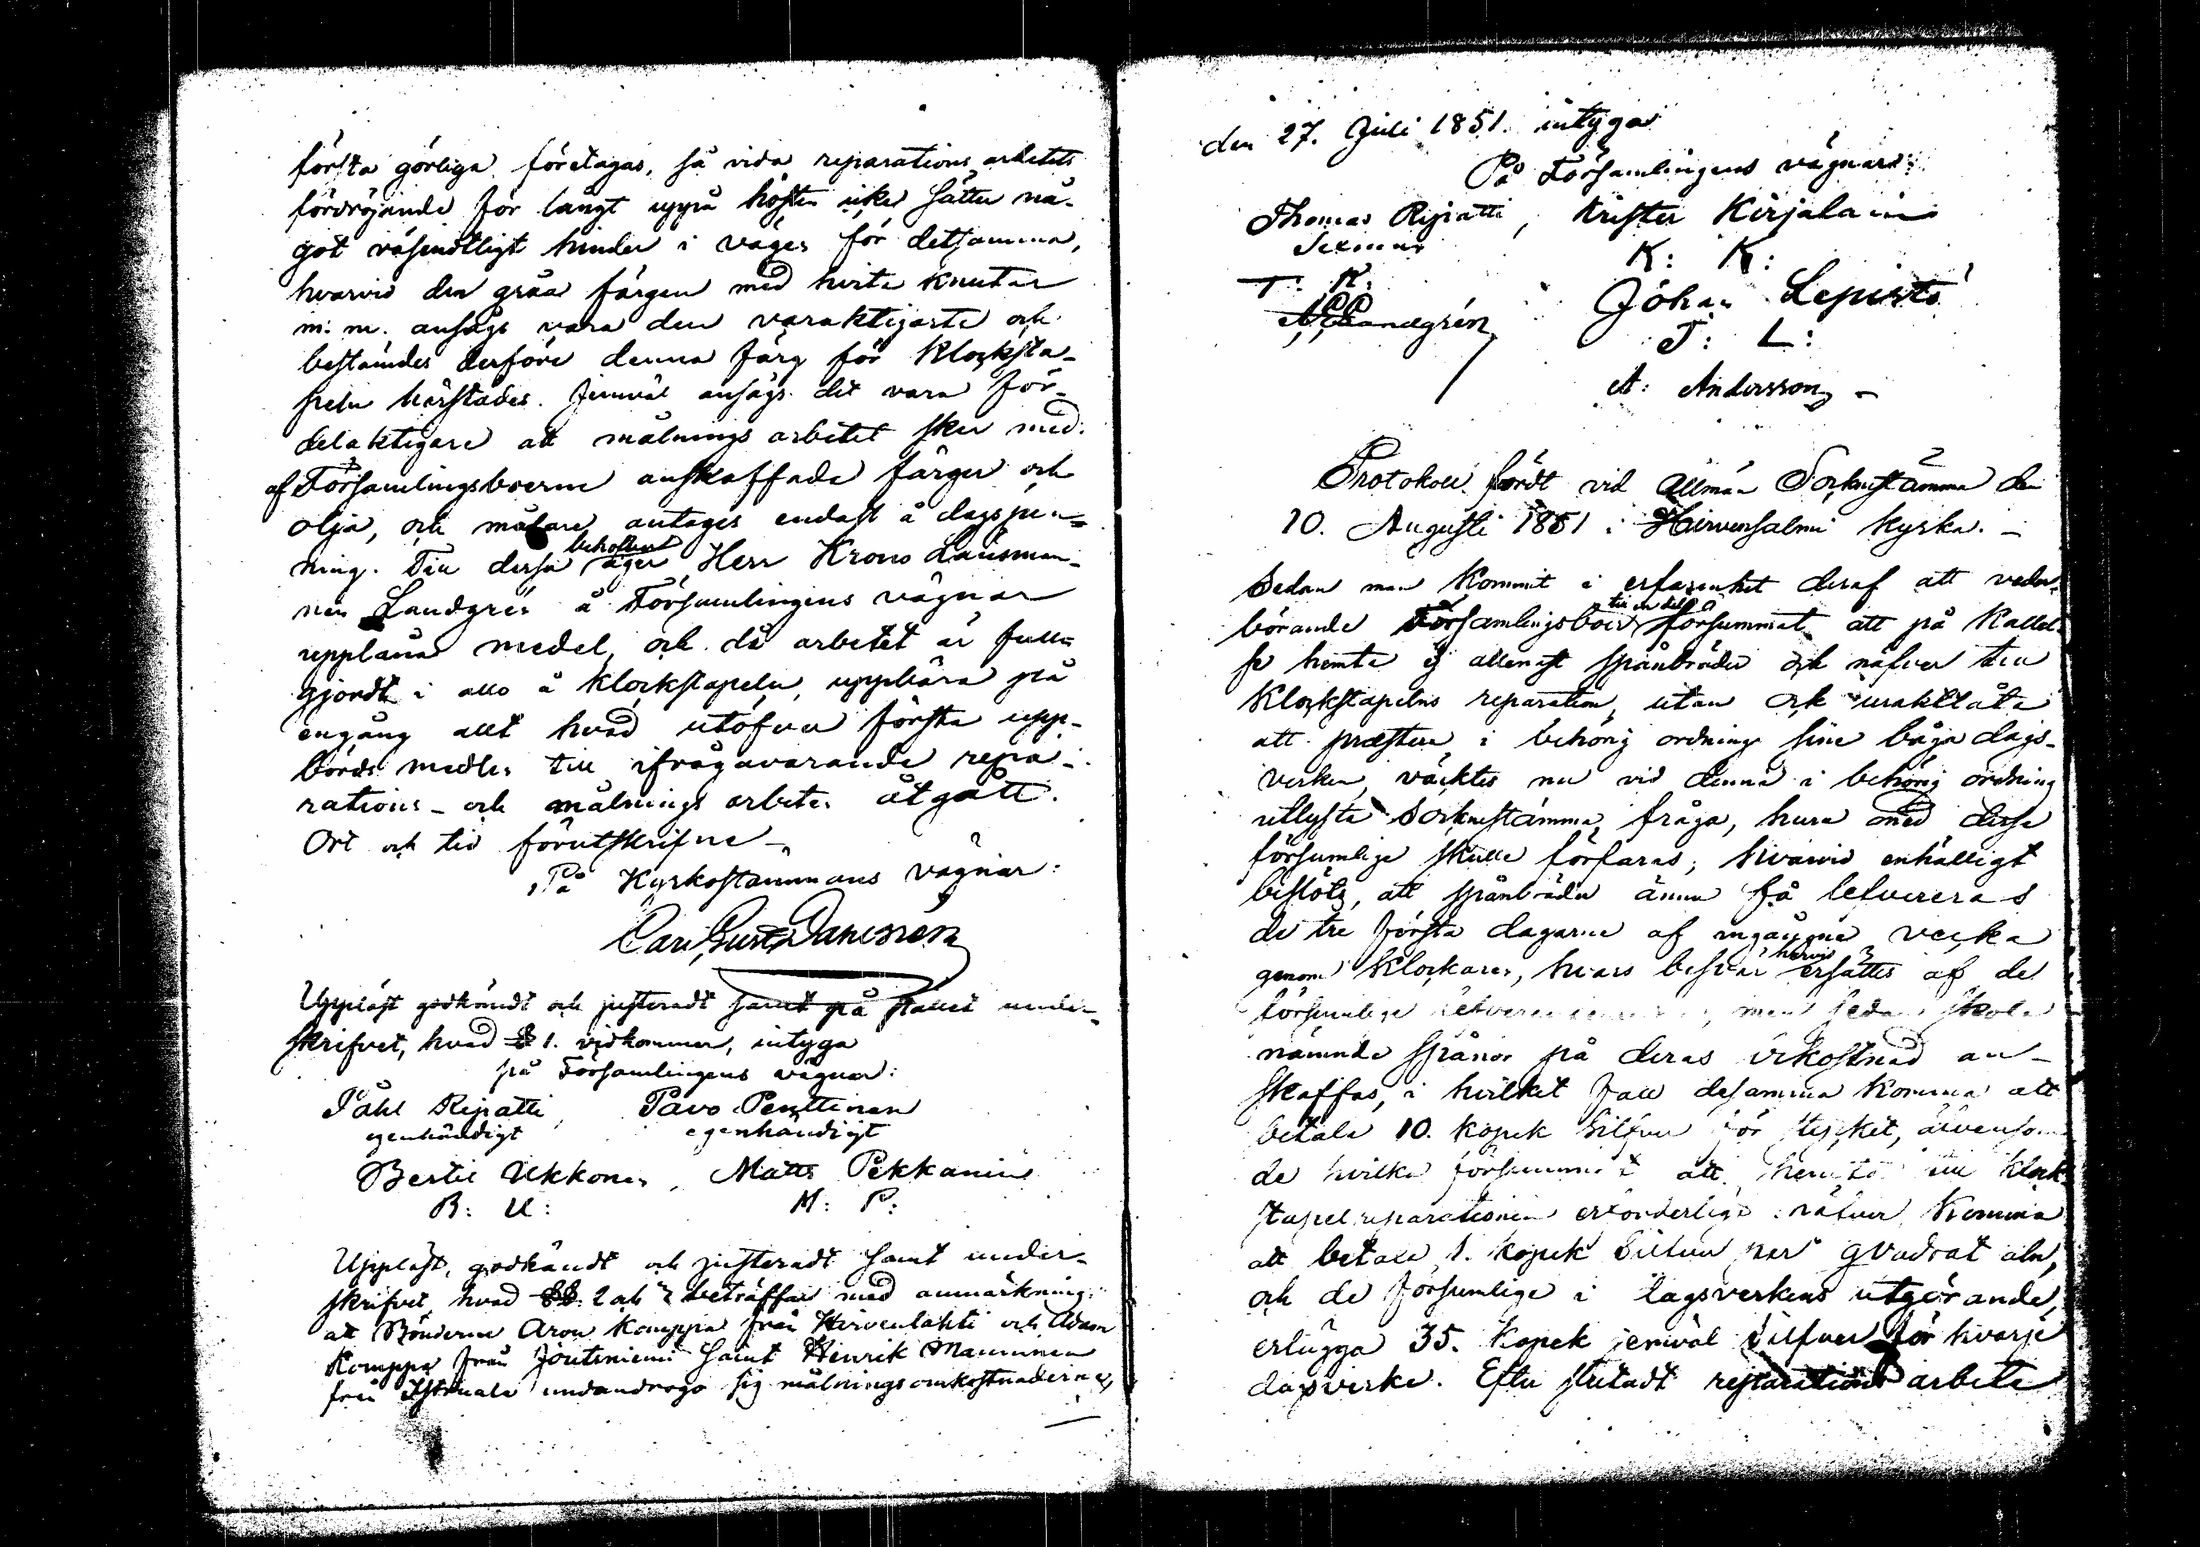 första görliga företagas, så vida reparations arbetets
fördröjande för långt uppå hösten icke sätter nå-
got väsendtligt hinder i vägen för detsamma,
hvarvid den gråa färgen med hvita knutar
m: m. ansågs vara den varaktigaste och
bestämdes derföre denna färg för klocksta-
peln härstädes. Jemväl ansågs det vara för-
delaktigare att målnings arbetet sker med
af Församlingsboerne anskaffade färger och
olja, och målare antages endast å dagspen-
ning. Till dessa behofver äger Herr Krono Länsman-
nen Landgrén å Församlingens vägnar
upplåna medel, och då arbetet är full-
gjordt i allo å klockstapeln, uppbära på
engång allt hvad utöfver första upp-
börds medlen till ifrågavarande repa-
rations- och målnings arbeten åtgått.
Ort och tid förutskrifne
På Kyrkostämmans vägnar:
Carl Gust Danesrén
Uppläst godkändt och justeradt samt på stället under-
skrifvet, hvad § 1. vidkommer, intyga
på Församlingens vägnar:
Påhl Ripatti, Pavo Penttinen
egenhändigt egenhändigt
Bertil Ukkonen, Matts Pekkanen
B: U: M: P:
Uppläst, godkändt och justeradt samt under-
skrifvet, hvad §§. 2 och 3 beträffar med anmärkning
att Bönderne Aron Komppa från Hirvenlahti och Adam
Komppa från Joutsniemi samt Henrik Manninen
från undandrogo sig målningsomkostnaderne,
den 27. Juli 1851. intyga
På Församlingens vägnar:
Thomas Ripatti, Krister Kirjalain
Sexman K: K:
T: R:
Landgrén Johan Lepistö
J: L:
A: Andersson
Protokoll fördt vid allmän Sockenstämma den
10. Augusti 1851 i Hirvensalmi kyrka.
Sedan man kommit i erfarenhet deraf att veder-
börande Församlingsboer till en del försummat att på kallel-
se hemta ej allenast spånbräder och näfver till
Klockstapelns reparation, utan ock uraktlåta
att præstera i behörig ordning sine båga dags-
verken, väcktes nu vid denna i behörig ordning
utlyste Sockenstämma, fråga, huru med desse
försumlige skulle förfaras; hvarvid enhälligt
beslöts, att spånbräder ännu få lefvereras
de tre första dagarne af ingående vecka
genom Klockaren, hvars besvär härvid ersättes af de
försumlige men sedan skola
nämnde spånor på deras bekostnad an-
skaffas, i hvilket fall desamma komma att
betala 10. kopek Silfver för stycket, äfvensom
de hvilka försummat att hemta till klock-
stapel reparationen erforderlige näfver komma
att betala 1. kopek Silfver per qvadrat aln,
och de försumlige i dagsverkens utgörande,
erlägga 35. kopek jemväl Silfver för hvarje
dagsverke. Efter slutadt reparations arbete